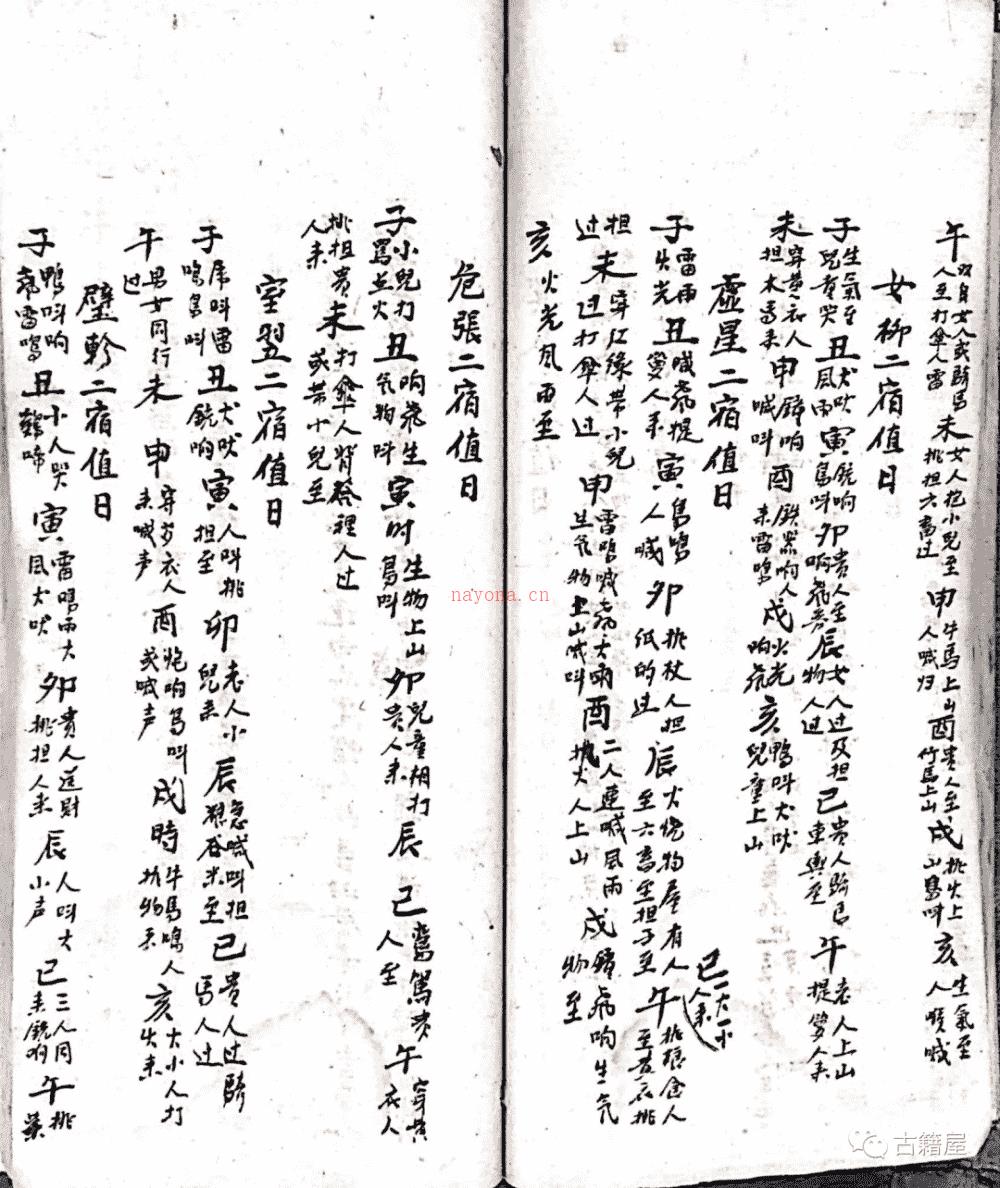 午 双身女人或騎馬人至打傘人雷 未 女人抱小兒至挑担六畜过 申 牛馬上山人喊归 酉 貴人至竹馬上山 戌 挑火上山鳥叫 亥 生氣至人喉喊
女柳二宿值日
子 生氣至兒童哭 丑 犬吠風雨 寅 銃响鳥叫 卯 貴人至响 辰 女人过及担物人过 巳 貴人騎良東輿至 午 老人上山提籮人来
未 穿黄衣人担木馬来 申 鋒响喊叫 酉 鉄器响人来雷鳴 戌 火光响 亥 鴨叫犬吠兒童上山
虚星二宿值日
子 雷雨火光 丑 喊 提籮人来 寅 鳥鳴人喊 卯 挑杖人担纸的过 辰 火烧物屋有人至六畜至担子至 巳 一大一小人来 午 挑 人至黄衣挑
担过 未 穿红缘带小兒过打傘人过 申 雷鳴喊 大雨生气物上山喊叫 酉 二人連喊風雨执火人上山 戌 响生气物至
亥 火光風雨至
危張二宿值日
子 小兒打罵並火 丑 响 生气物叫 寅时 生物上山鳥叫 卯 兒童相打貴人来 辰 巳 鸞駕貴人至 午 穿黄衣人
挑担貴人来 未 打傘人背 裡人过或带小兒至
室翌二宿值日
子 叫雷鳴鳥叫 丑 犬吠銃响 寅 人叫挑担至 卯 老人小兒来 辰 急喊叫担 谷米至 巳 貴人过騎馬人过
午 男女同行过 未 申 穿 衣人来喊声 酉 炮响鳥叫或喊声 戌時 牛馬鳴人执物来 亥 大小人打火来
璧軫二宿值日
子 鴨叫响 雷鳴 丑 小人哭 啼 寅 雷鳴雨大風犬吠 卯 貴人送财挑担人来 辰 人叫大小声 巳 三人同来銃响 午 挑
nayona.cn
古籍屋